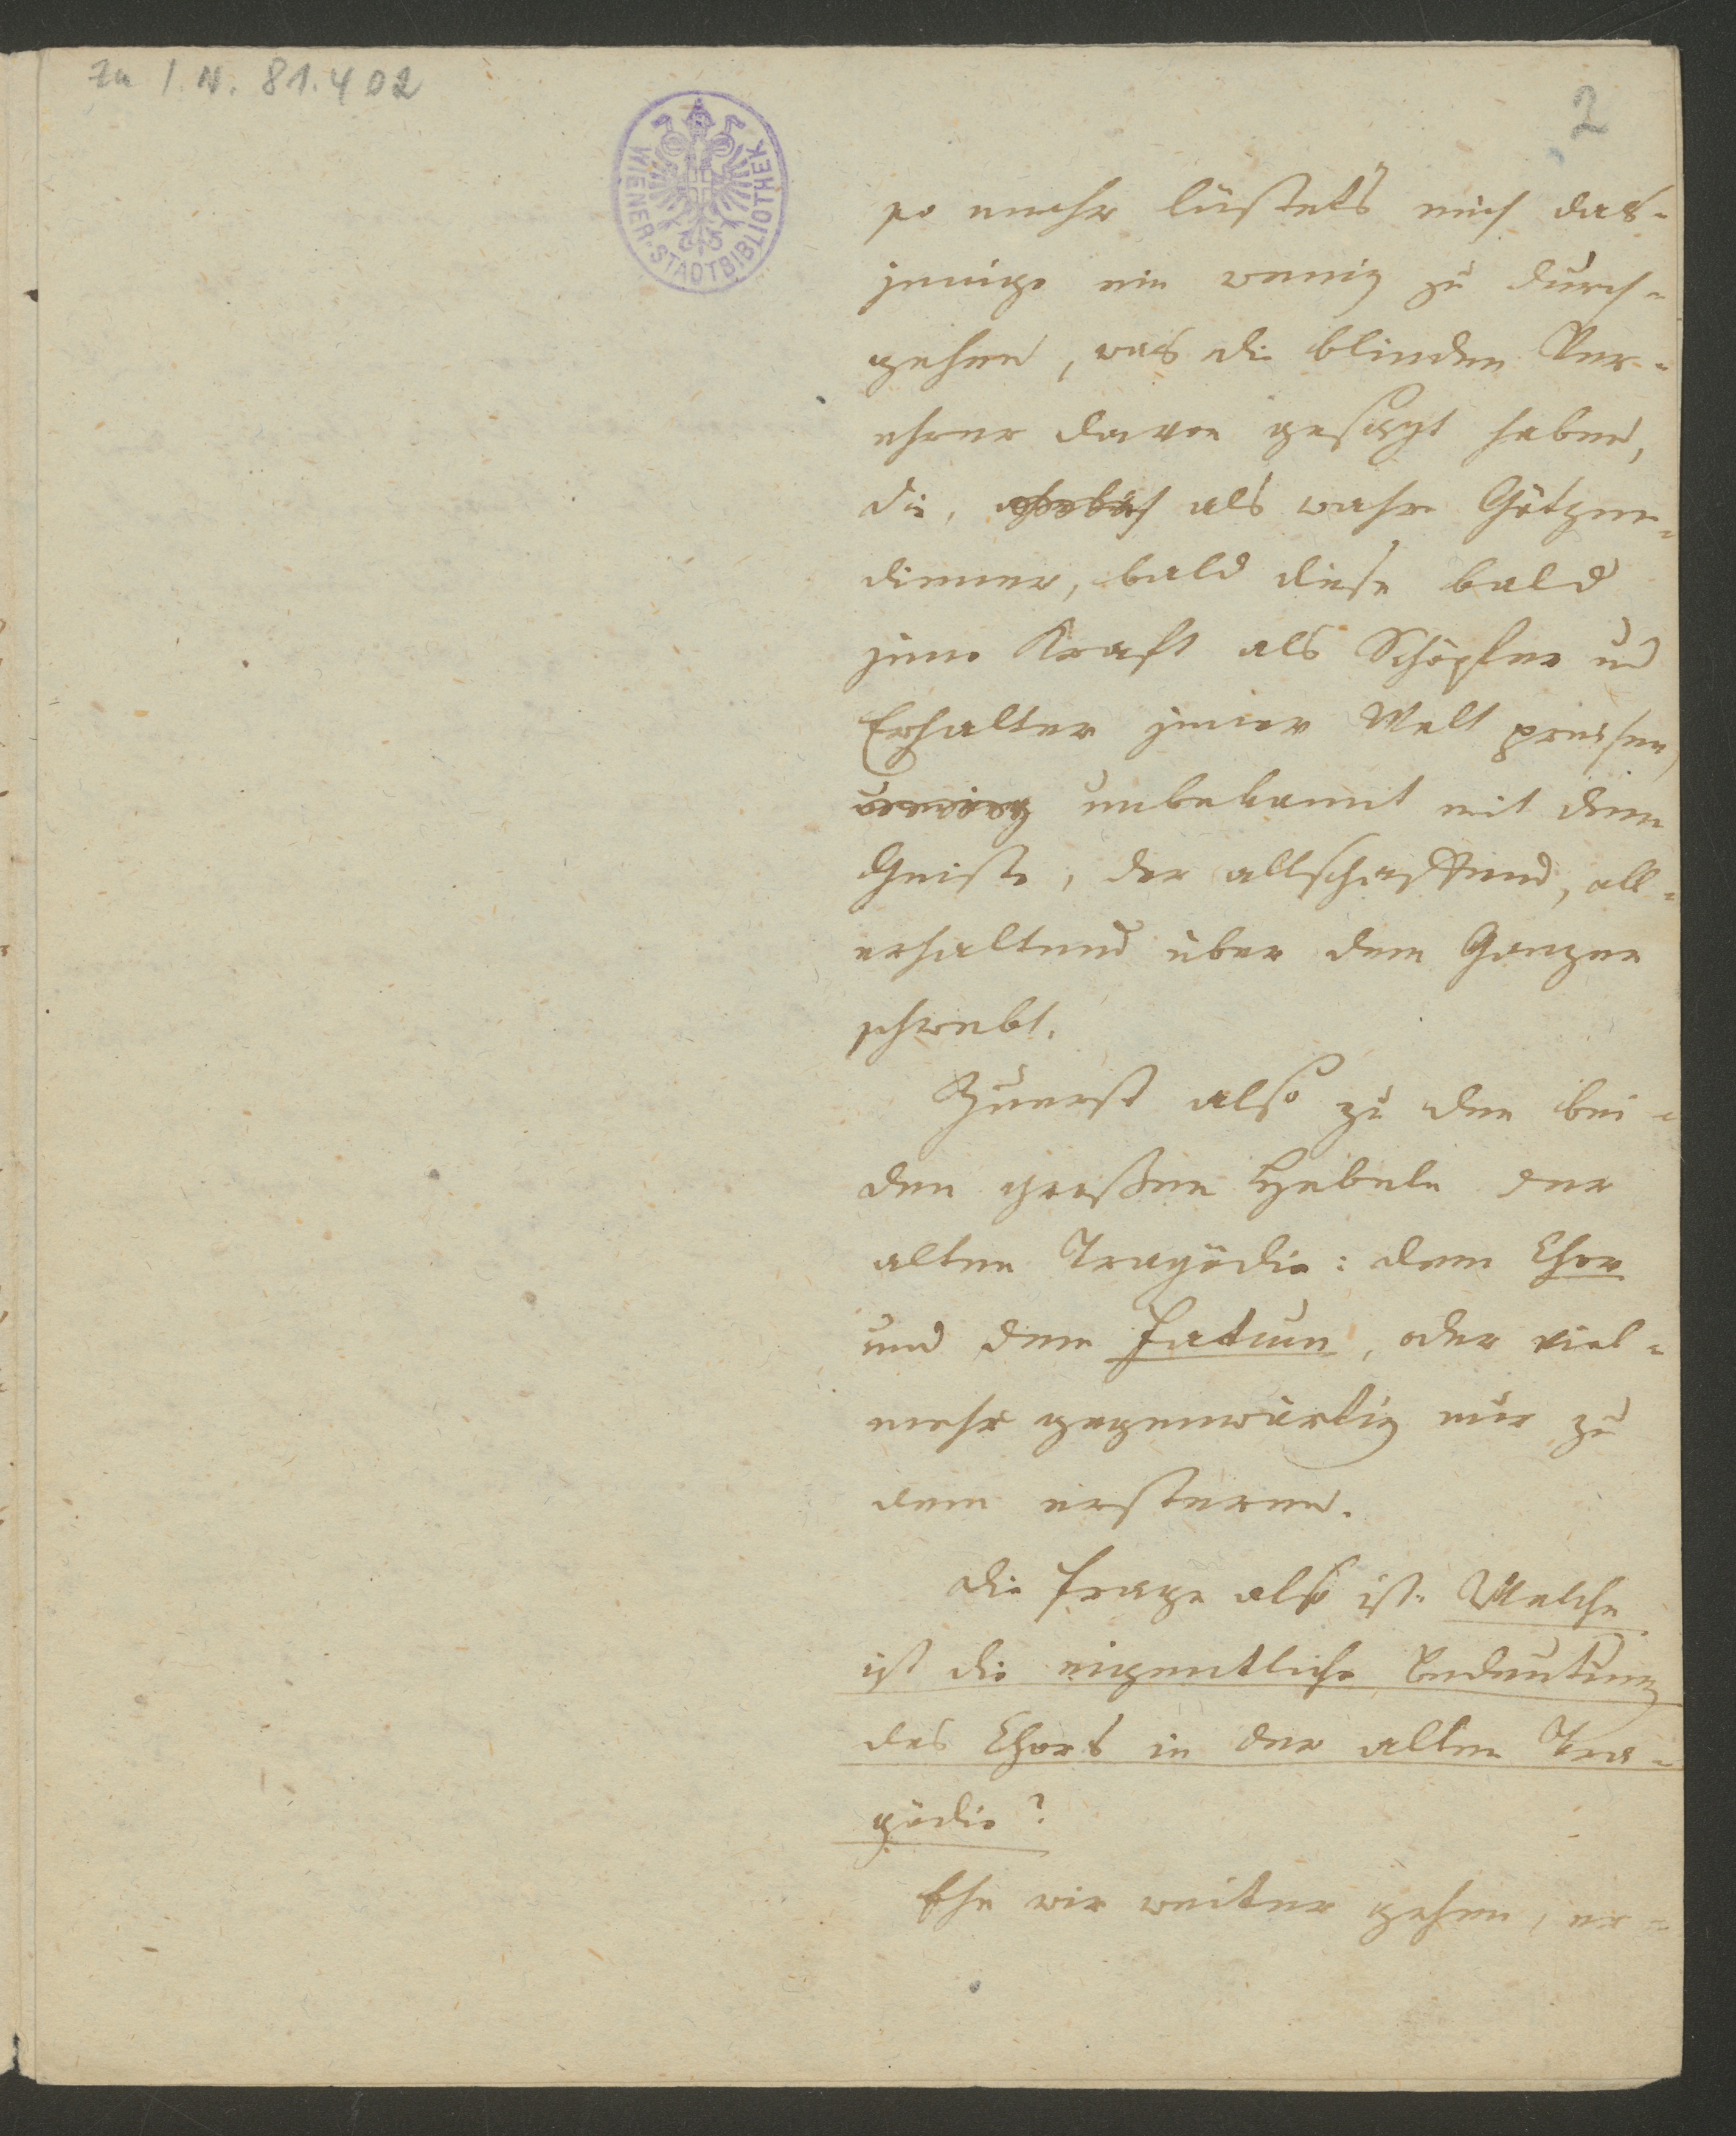 Zu I. N. 81.402
2
WIENER-STADTBIBLIOTHEK
so mehr lüstets mich das-
jenige ein wenig zu durch-
gehen, was die blinden Ver-
ehrer davon gesagt haben,
die, als wahre Götzen-
diener, bald diese bald
jene Kraft als Schöpfer und
Erhalter jener Welt priesen,
unbekannt mit dem
Geiste, der allschaffend, all-
erhaltend über dem Ganzen
schwebt.
Zuerst also zu den bei-
den großen Hebeln der
alten Tragödie: dem Chor
und dem Fatum, oder viel-
mehr gegenwärtig nur zu
dem ersteren.
Die Frage also ist: Welche
ist die eigentliche Bedeutung
des Chors in der alten Tra-
gödie?
Ehe wir weiter gehen, er-